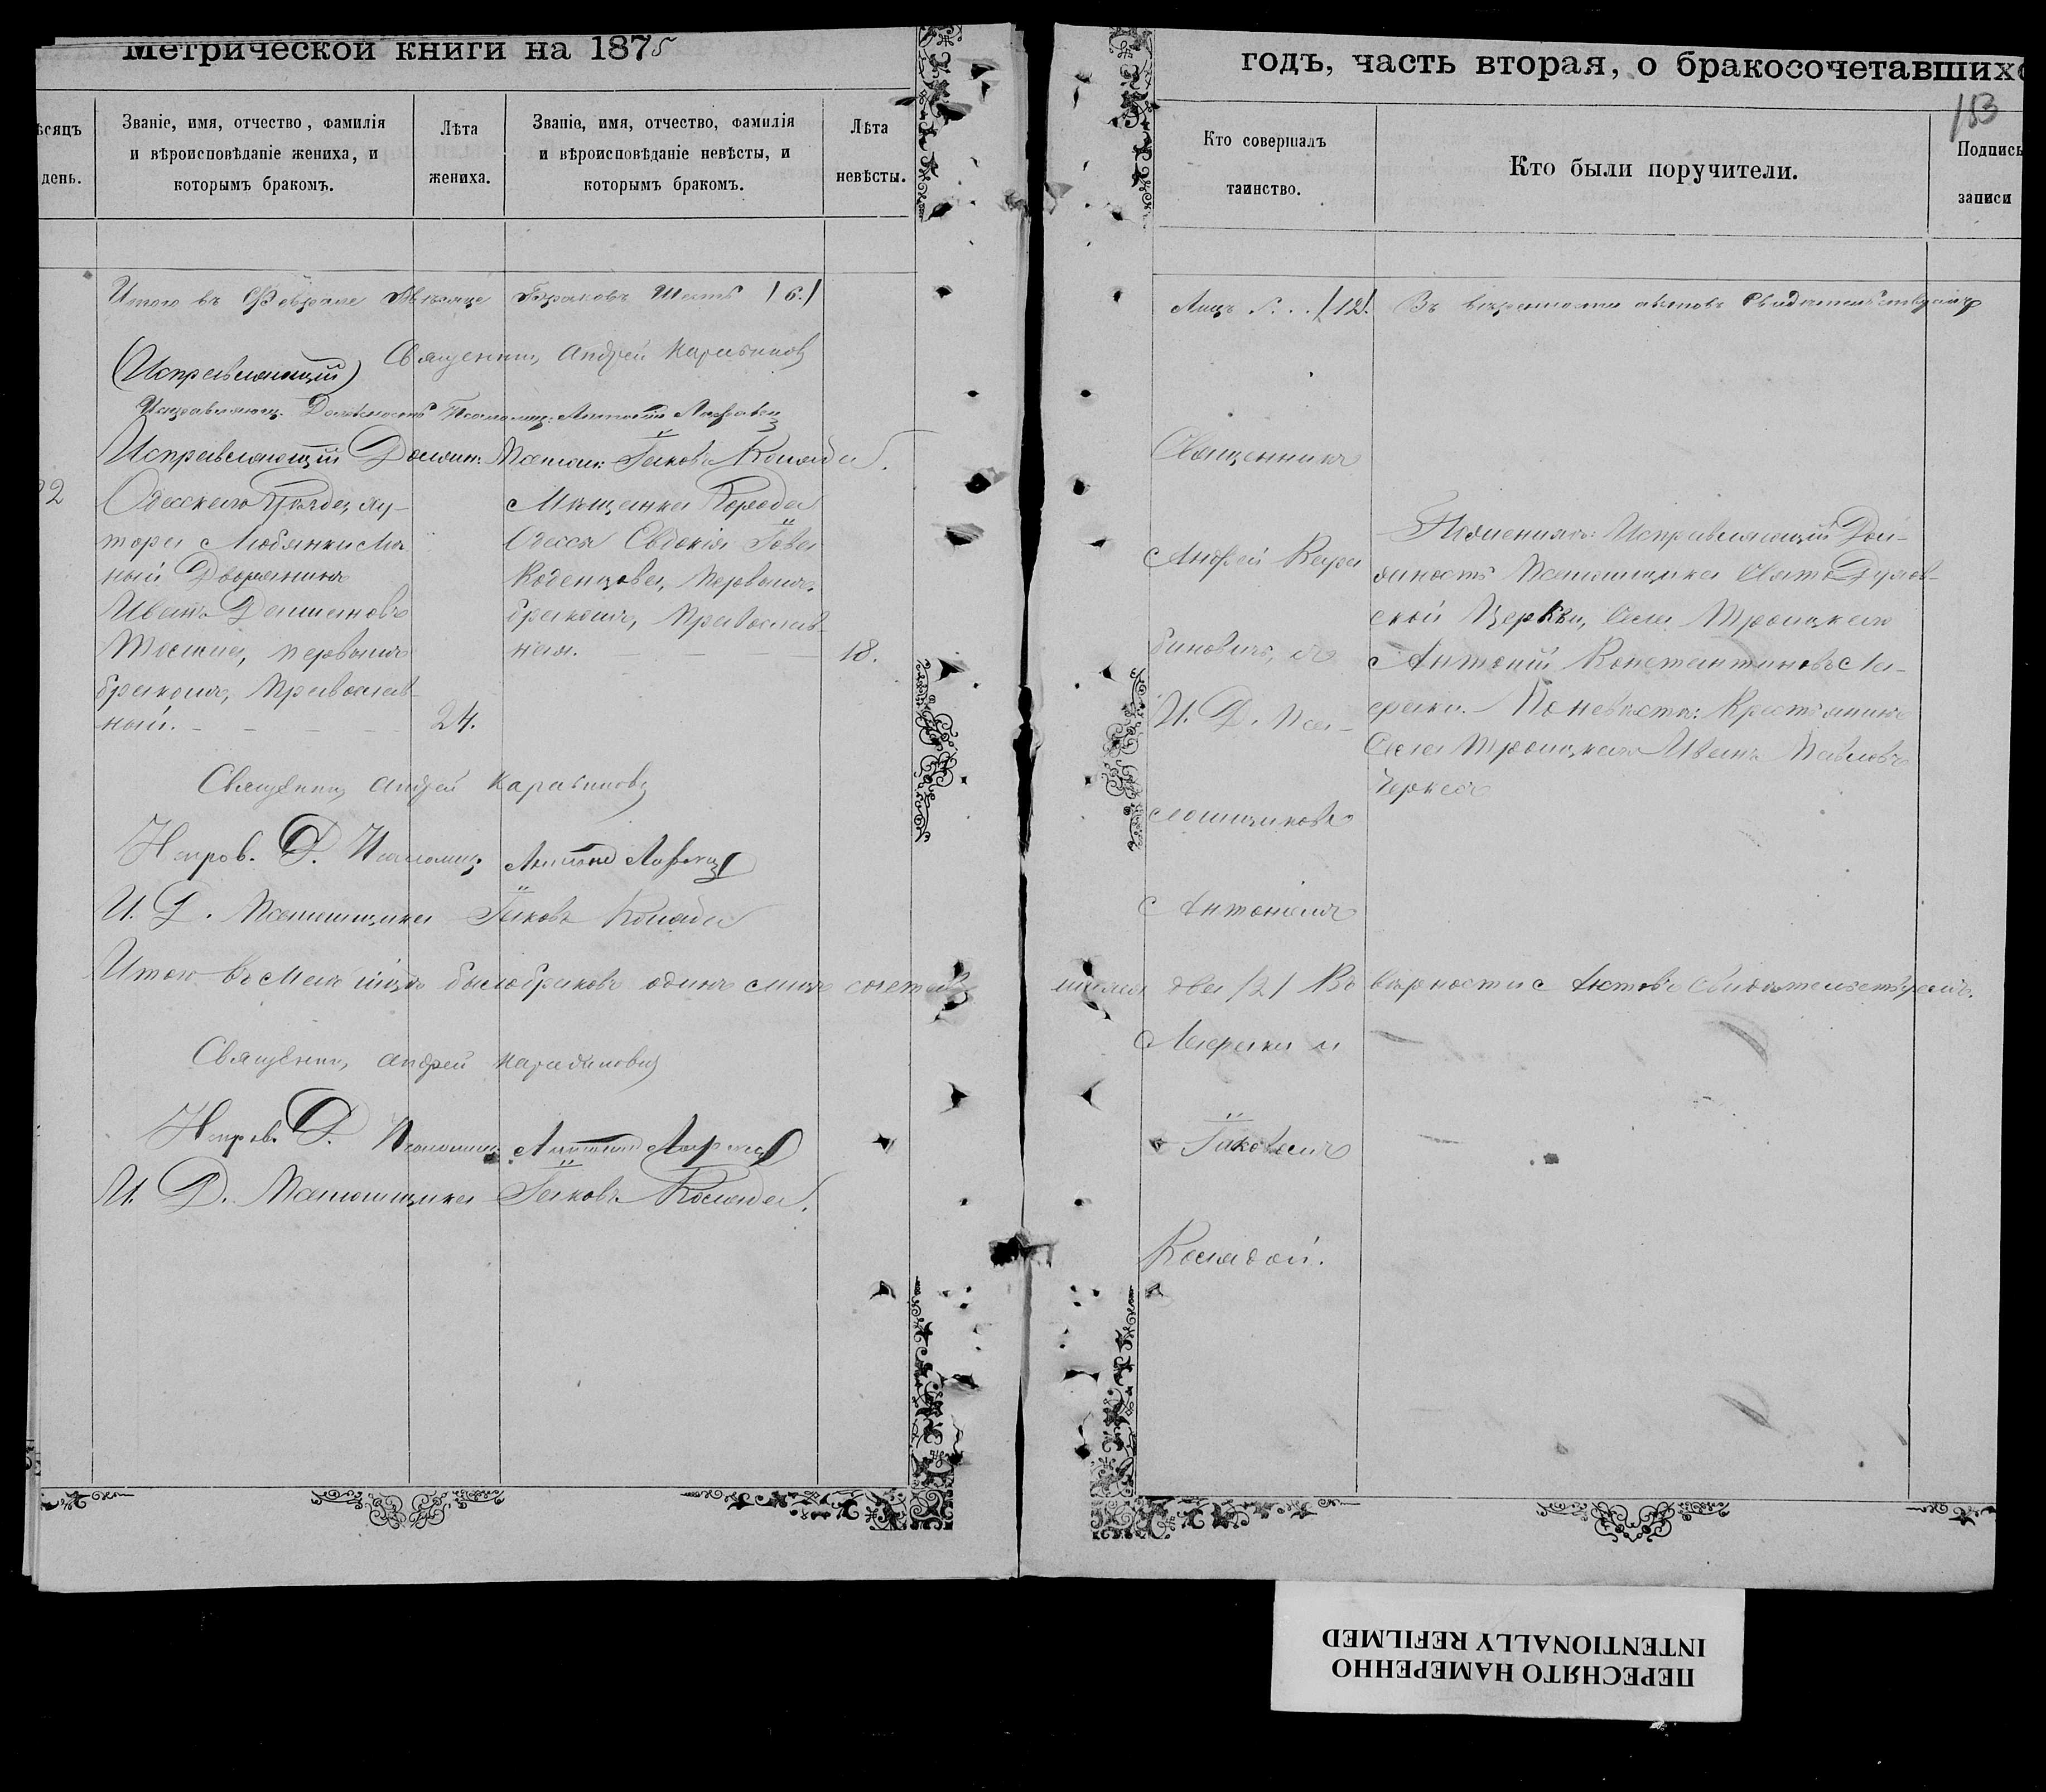 Метрической книги на 1875
годъ, часть вторая, о бракосочетавшихс
153
ѣсяцъ
день.
Званіе, имя, отчество, фамилія
и вѣроисповѣданіе жениха, и
которымъ бракомъ.
Лѣта
жениха.
Званіе, имя, отчество, фамилія
и вѣроисповѣданіе невѣсты, и
которымъ бракомъ.
Лѣта
невѣсты.
Кто совершалъ
таинство.
Кто были поручители.
Подпись
записи
Итого въ Февралѣ Мѣсяце Браковъ Шесть /6./
Лицъ /12/. Въ вѣрности актовъ свидѣтельствуемъ
Священникъ Андрей
(Исправляющій)
Исправляющ. Должность Псаломщ: Антоній
Исправляющій Должн: Псалом: Іаковъ Коляда.
22
Одесскаго Уѣзда, ху-
тора Любянки
ный Дворянинъ
Иванъ Даміановъ
первымъ
бракомъ, Православ-
ный. - - - -
24.
Мѣщанка Города
Одессы Евдокія
первымъ
бракомъ, Православ-
ная. - - -
18.
Священникъ
Андрей Кара
биновичъ, съ
И. Д. Пса-
ломщиковъ
Антоніемъ
и
Іаковомъ
Колядой.
По женихѣ: Исправляющій Дол-
жность Псаломщика Свято Духов-
ской Церкви, Села Троицкаго
Антоній Константиновъ
По невѣстѣ: Крестьянинъ
Села Троицкаго Иванъ Павловъ
Черкесъ
Священникъ Андрей
Исправ. Д. Псаломщ: Антоній
И. Д. Псаломщика Іаковъ Коляда
Итого въ Маѣ было браковъ одинъ лицъ сочетав
шихся два /2/ Въ вѣрности Актовъ свидѣтельствуемъ.
Священникъ Андрей
Исправ. Д. Псаломщ: Антоній
И. Д. Псаломщика Іаковъ Коляда.
ПЕРЕСНЯТО НАМЕРЕННО
INTENTIONALLY REFILMED